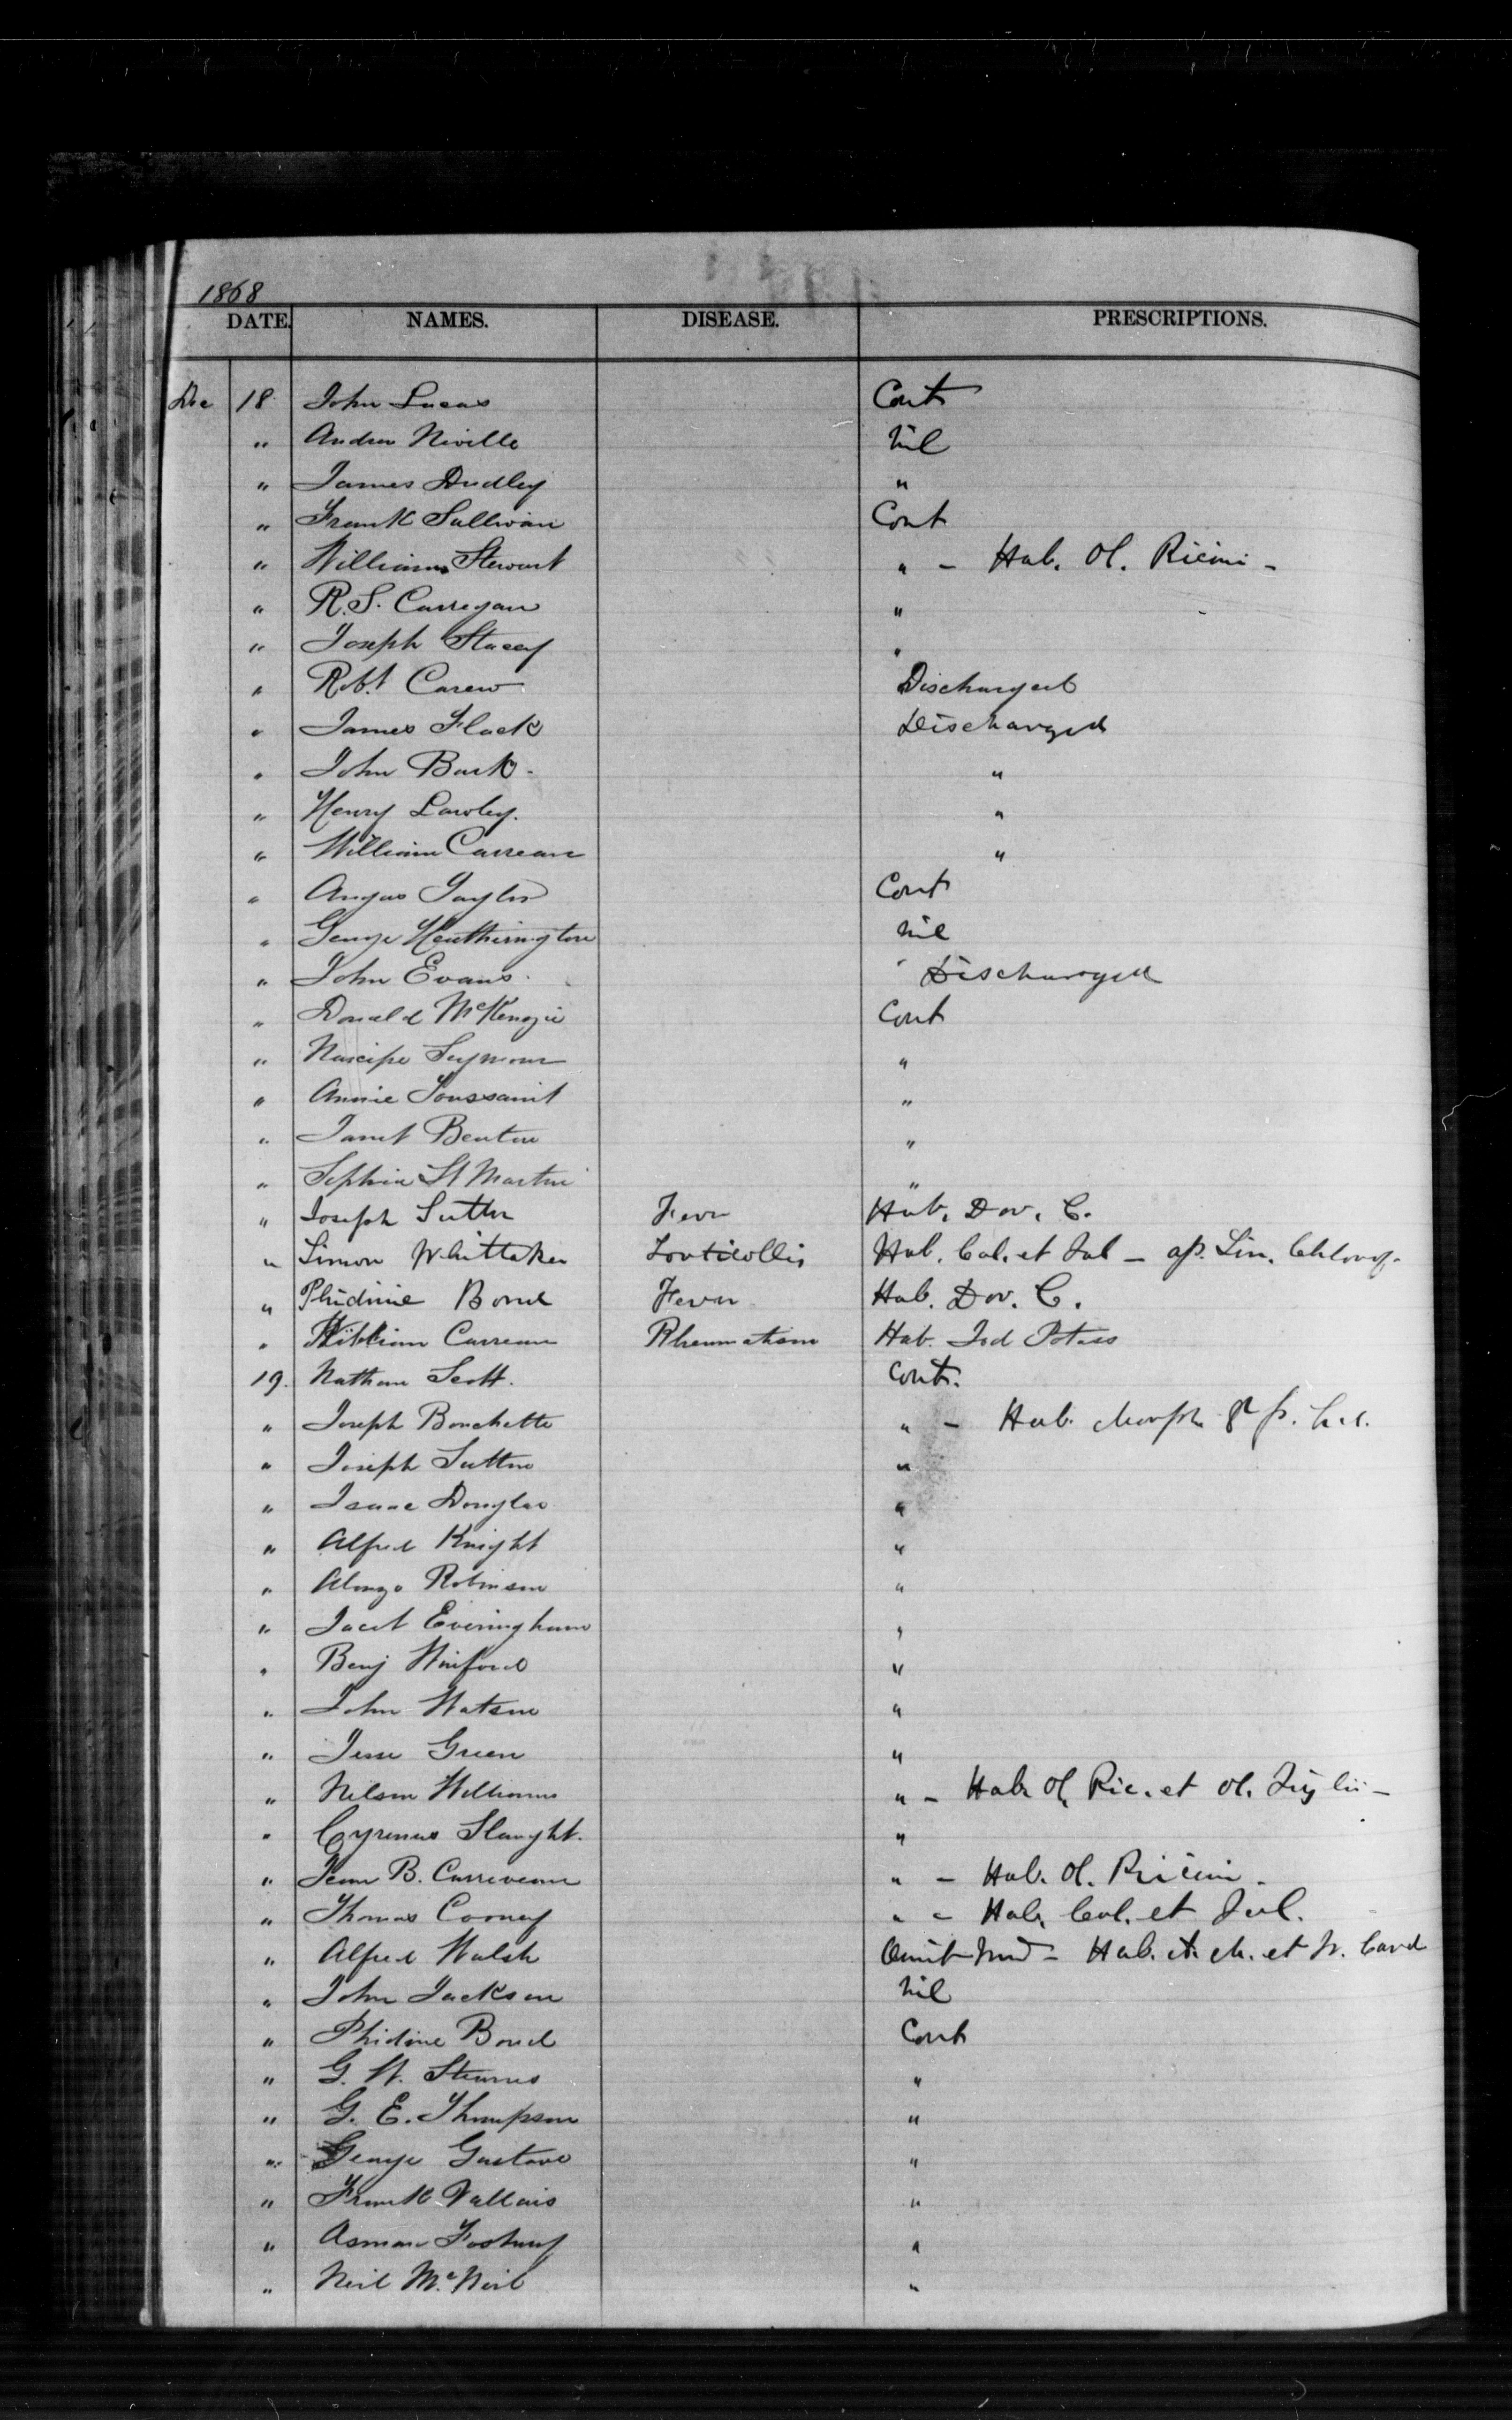 1868
DATE. NAMES. DISEASE. PRESCRIPTIONS.
Dec 18 John Lucas Cont
" Andrew Neville Nil
" James Dudley "
" Frank Sullivan Cont
" William Stewart " - Hab. Ol. Ricini -
" R. S. Carregan "
" Joseph Stacey "
" Robt Carew Discharged
" James Flack Discharged
" John Bark - "
" Henry Lawley. "
" William Carreau "
" Angus Taylor Cont
" George Heutherington Nil
" John Evans Discharged
" Donald McKenzie Cont
" Narcipe Seymour "
" Annie Toussaint "
" Janet Benton "
" Sophia St Martin "
" Joseph Sutton Fever Hab. Dov. C.
" Simon Whittaker Torticollis Hab. Cal. et Jal - ap. Lin. Chlorof.
" Phidime Bond Fever Hab. Dov. C.
" William Carreau Rheumatism Hab. Iod Potass
19. Nathan Scott. Cont.
" Joseph Bouchette " - Hab. Morph gr
" Joseph Sutton "
" Isaac Douglas "
" Alfred Knight "
" Alonzo Robinson "
" Jacob Everingham "
" Benj Winford "
" John Watson "
" Jesse Green "
" Nelson Williams " - Hab Ol. Ric. et Ol. Tiglii -
" Cyrenus Slaught. "
" Jean B. Carriveau " - Hab. Ol. Ricini -
" Thomas Cooney " - Hab. Cal. et Jal.
" Alfred Walsh Omit Med - Hab. et Card
" John Jackson Nil
" Phidime Bond Cont
" G. W. Stearns "
" G. E. Thompson "
" George Gustave "
" Frank Vallais "
" "
" Neil McNeil "